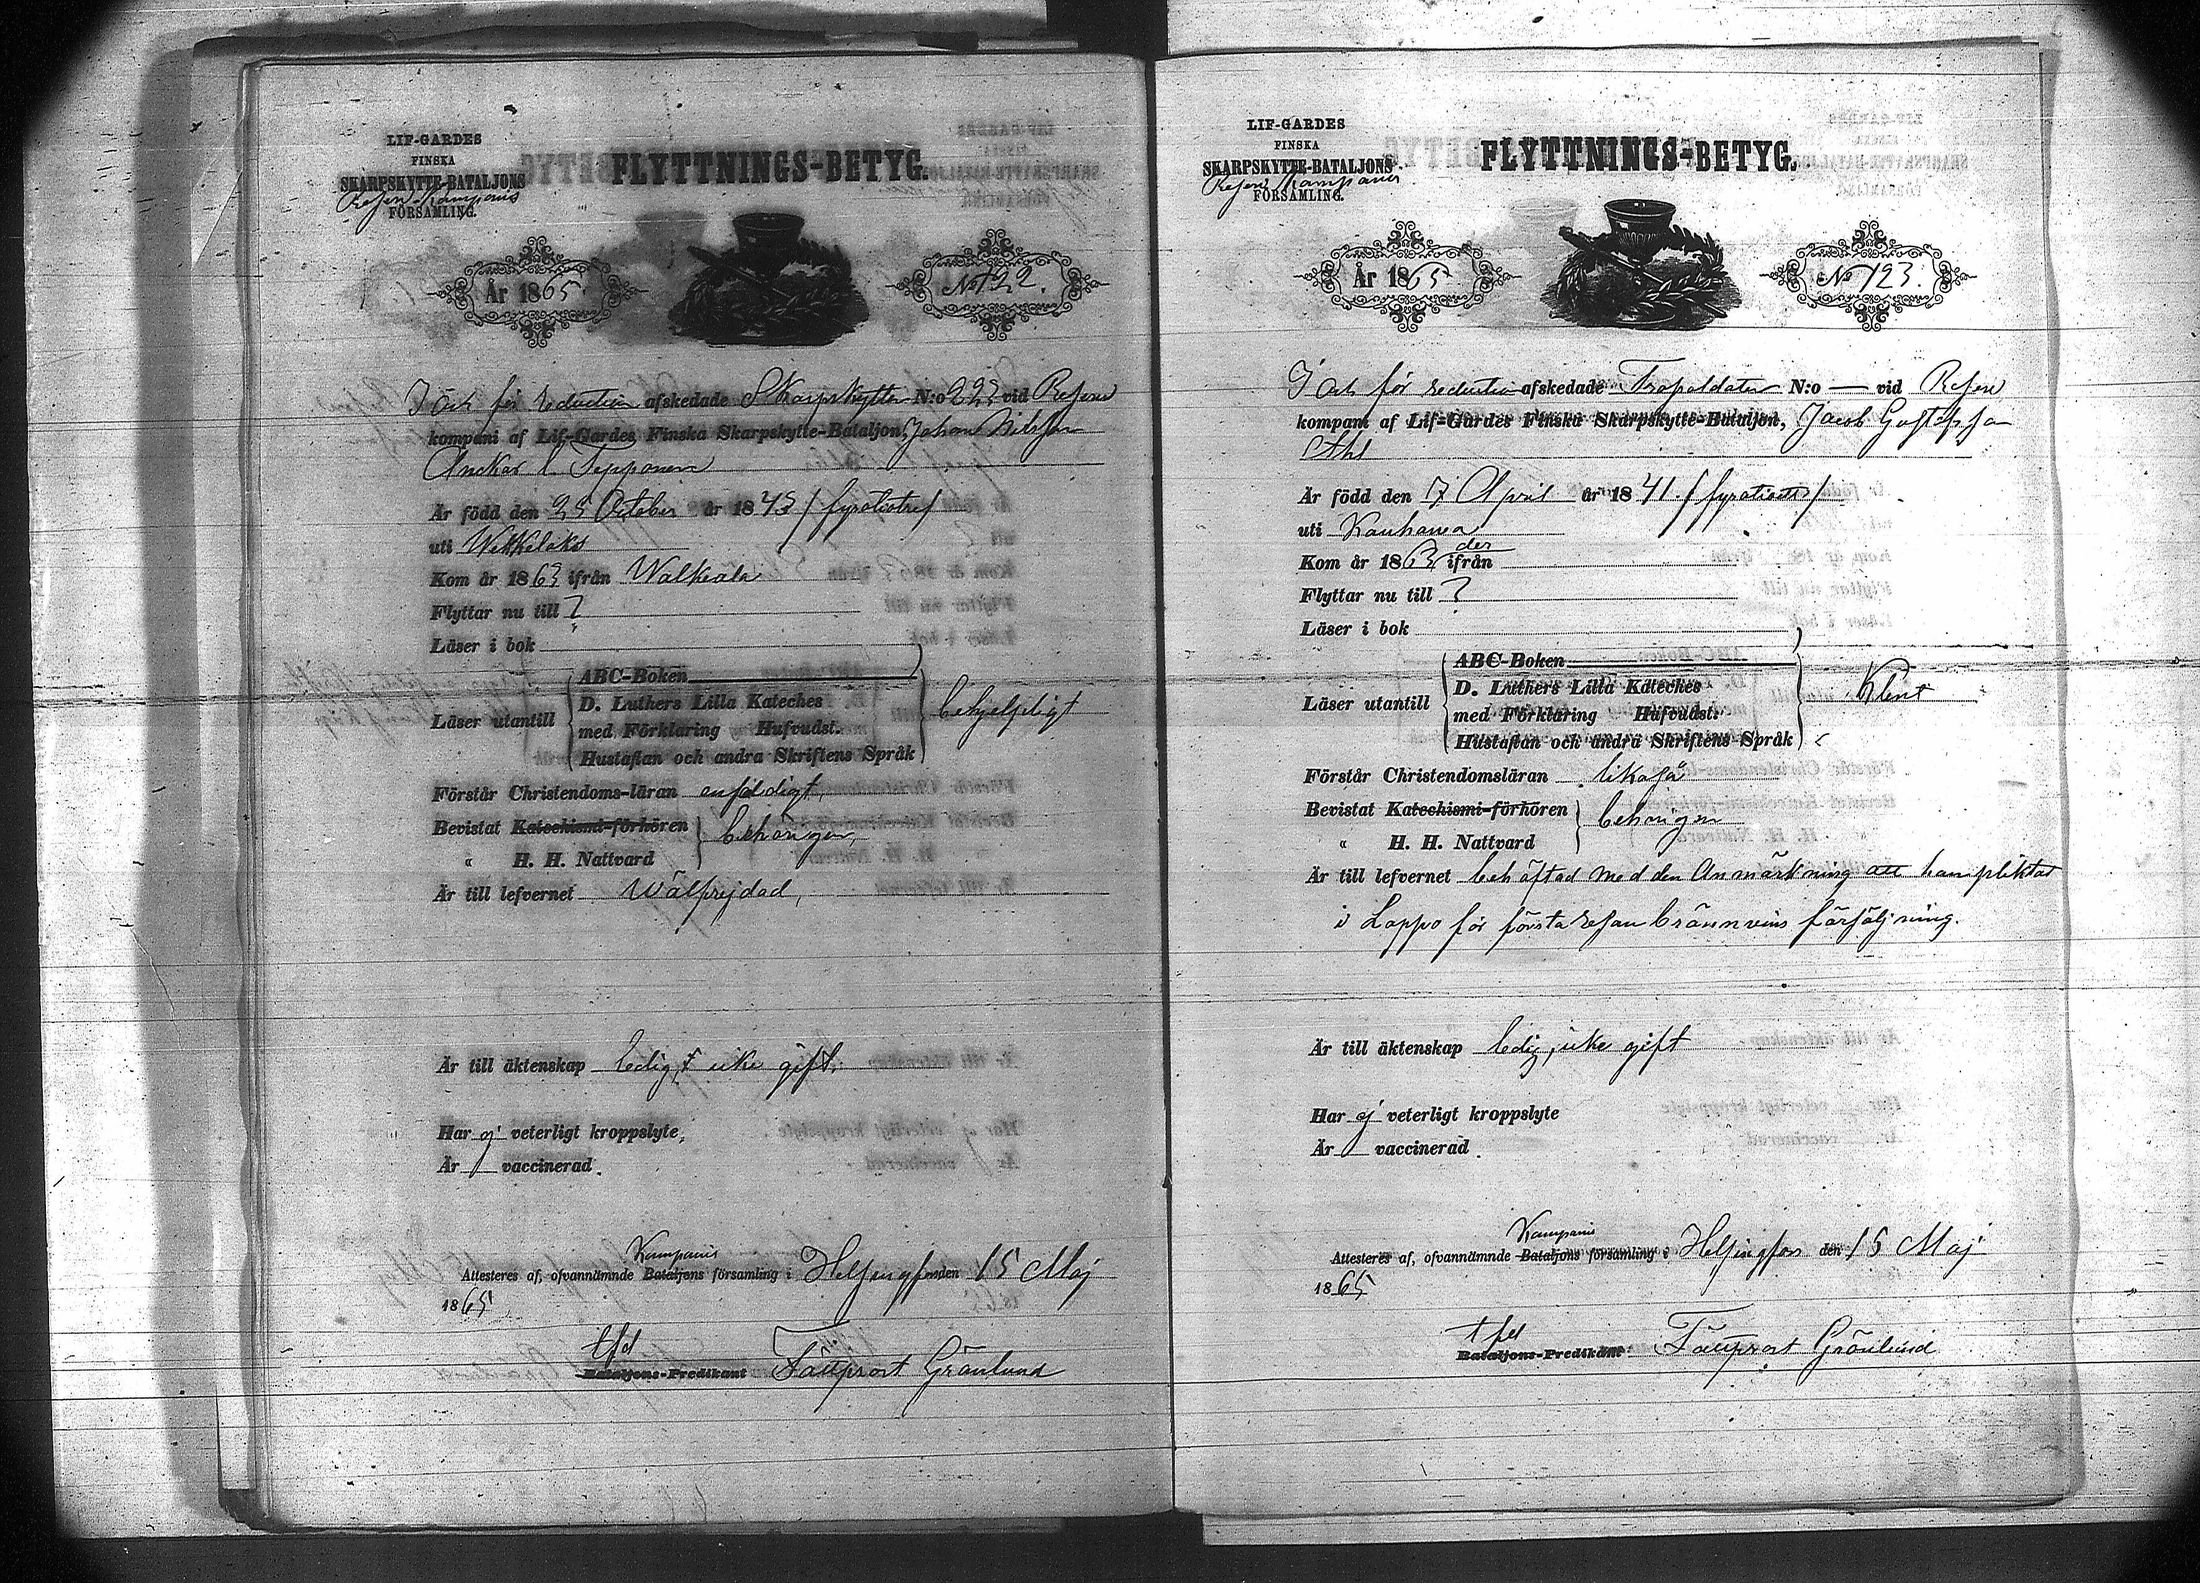 LIF-GARDES
FINSKA
SKARPSKYTTE-BATALJONS
Reserv Kompanis
FÖRSAMLING.
FLYTTNINGS-BETYG.
År 1865.
No 122.
I och för reduction afskedade Skarpskytten N:o 223 vid Reserv
kompani af Lif-Gardes Finska Skarpskytte-Bataljon, Johan Nilsson
Anckar l. Tepponen
Är född den 25 October år 1843 / fyratiotre /
uti Wekkelaks
Kom år 1863 ifrån Walkeala
Flyttar nu till ?
Läser i bok
Läser utantill
ABC-Boken
D. Luthers Lilla Kateches
med Förklaring Hufvudst.
Hustaflan och andra Skriftens Språk
behjelpligt
Förstår Christendoms-läran enfaldigt,
Bevistat Katechismi-förhören
" H. H. Nattvard
behörigen,
Är till lefvernet Wälfrejdad,
Är till äktenskap ledig, icke gift.
Har ej veterligt kroppslyte,
Är vaccinerad.
Kompanis
Attesteres af, ofvannämnde Bataljons församling i Helsingfors den 15 Maj
1865
tfd
Bataljons-Predikant Fältprost Grönlund
LIF-GARDES
FINSKA
SKARPSKYTTE-BATALJONS
Reserv Kompanis
FÖRSAMLING.
FLYTTNINGS-BETYG.
År 1865
No 123.
I och för reduction afskedade Trosoldaten N:o — vid Reserv
kompani af Lif-Gardes Finska Skarpskytte-Bataljon, Jacob Gustafsson
Ahl
Är född den 7 April år 1841. / fyratioett /
uti Kauhava
Kom år 1863 der ifrån
Flyttar nu till ?
Läser i bok
Läser utantill
ABC-Boken
D. Luthers Lilla Kateches
med Förklaring Hufvudst.
Hustaflan och andra Skriftens Språk
Klent
Förstår Christendomsläran likaså
Bevistat Katechismi-förhören
" H. H. Nattvard
behörigen
Är till lefvernet behäftad med den Anmärkning att han pliktat
i Lappo för första resan brännvins försäljning.
Är till äktenskap ledig, icke gift
Har ej veterligt kroppslyte
Är vaccinerad.
Kompanis
Attesteres af, ofvannämnde Bataljons församling i Helsingfors den 15 Maj
1865
tfd
Bataljons-Predikant Fältprost Grönlund